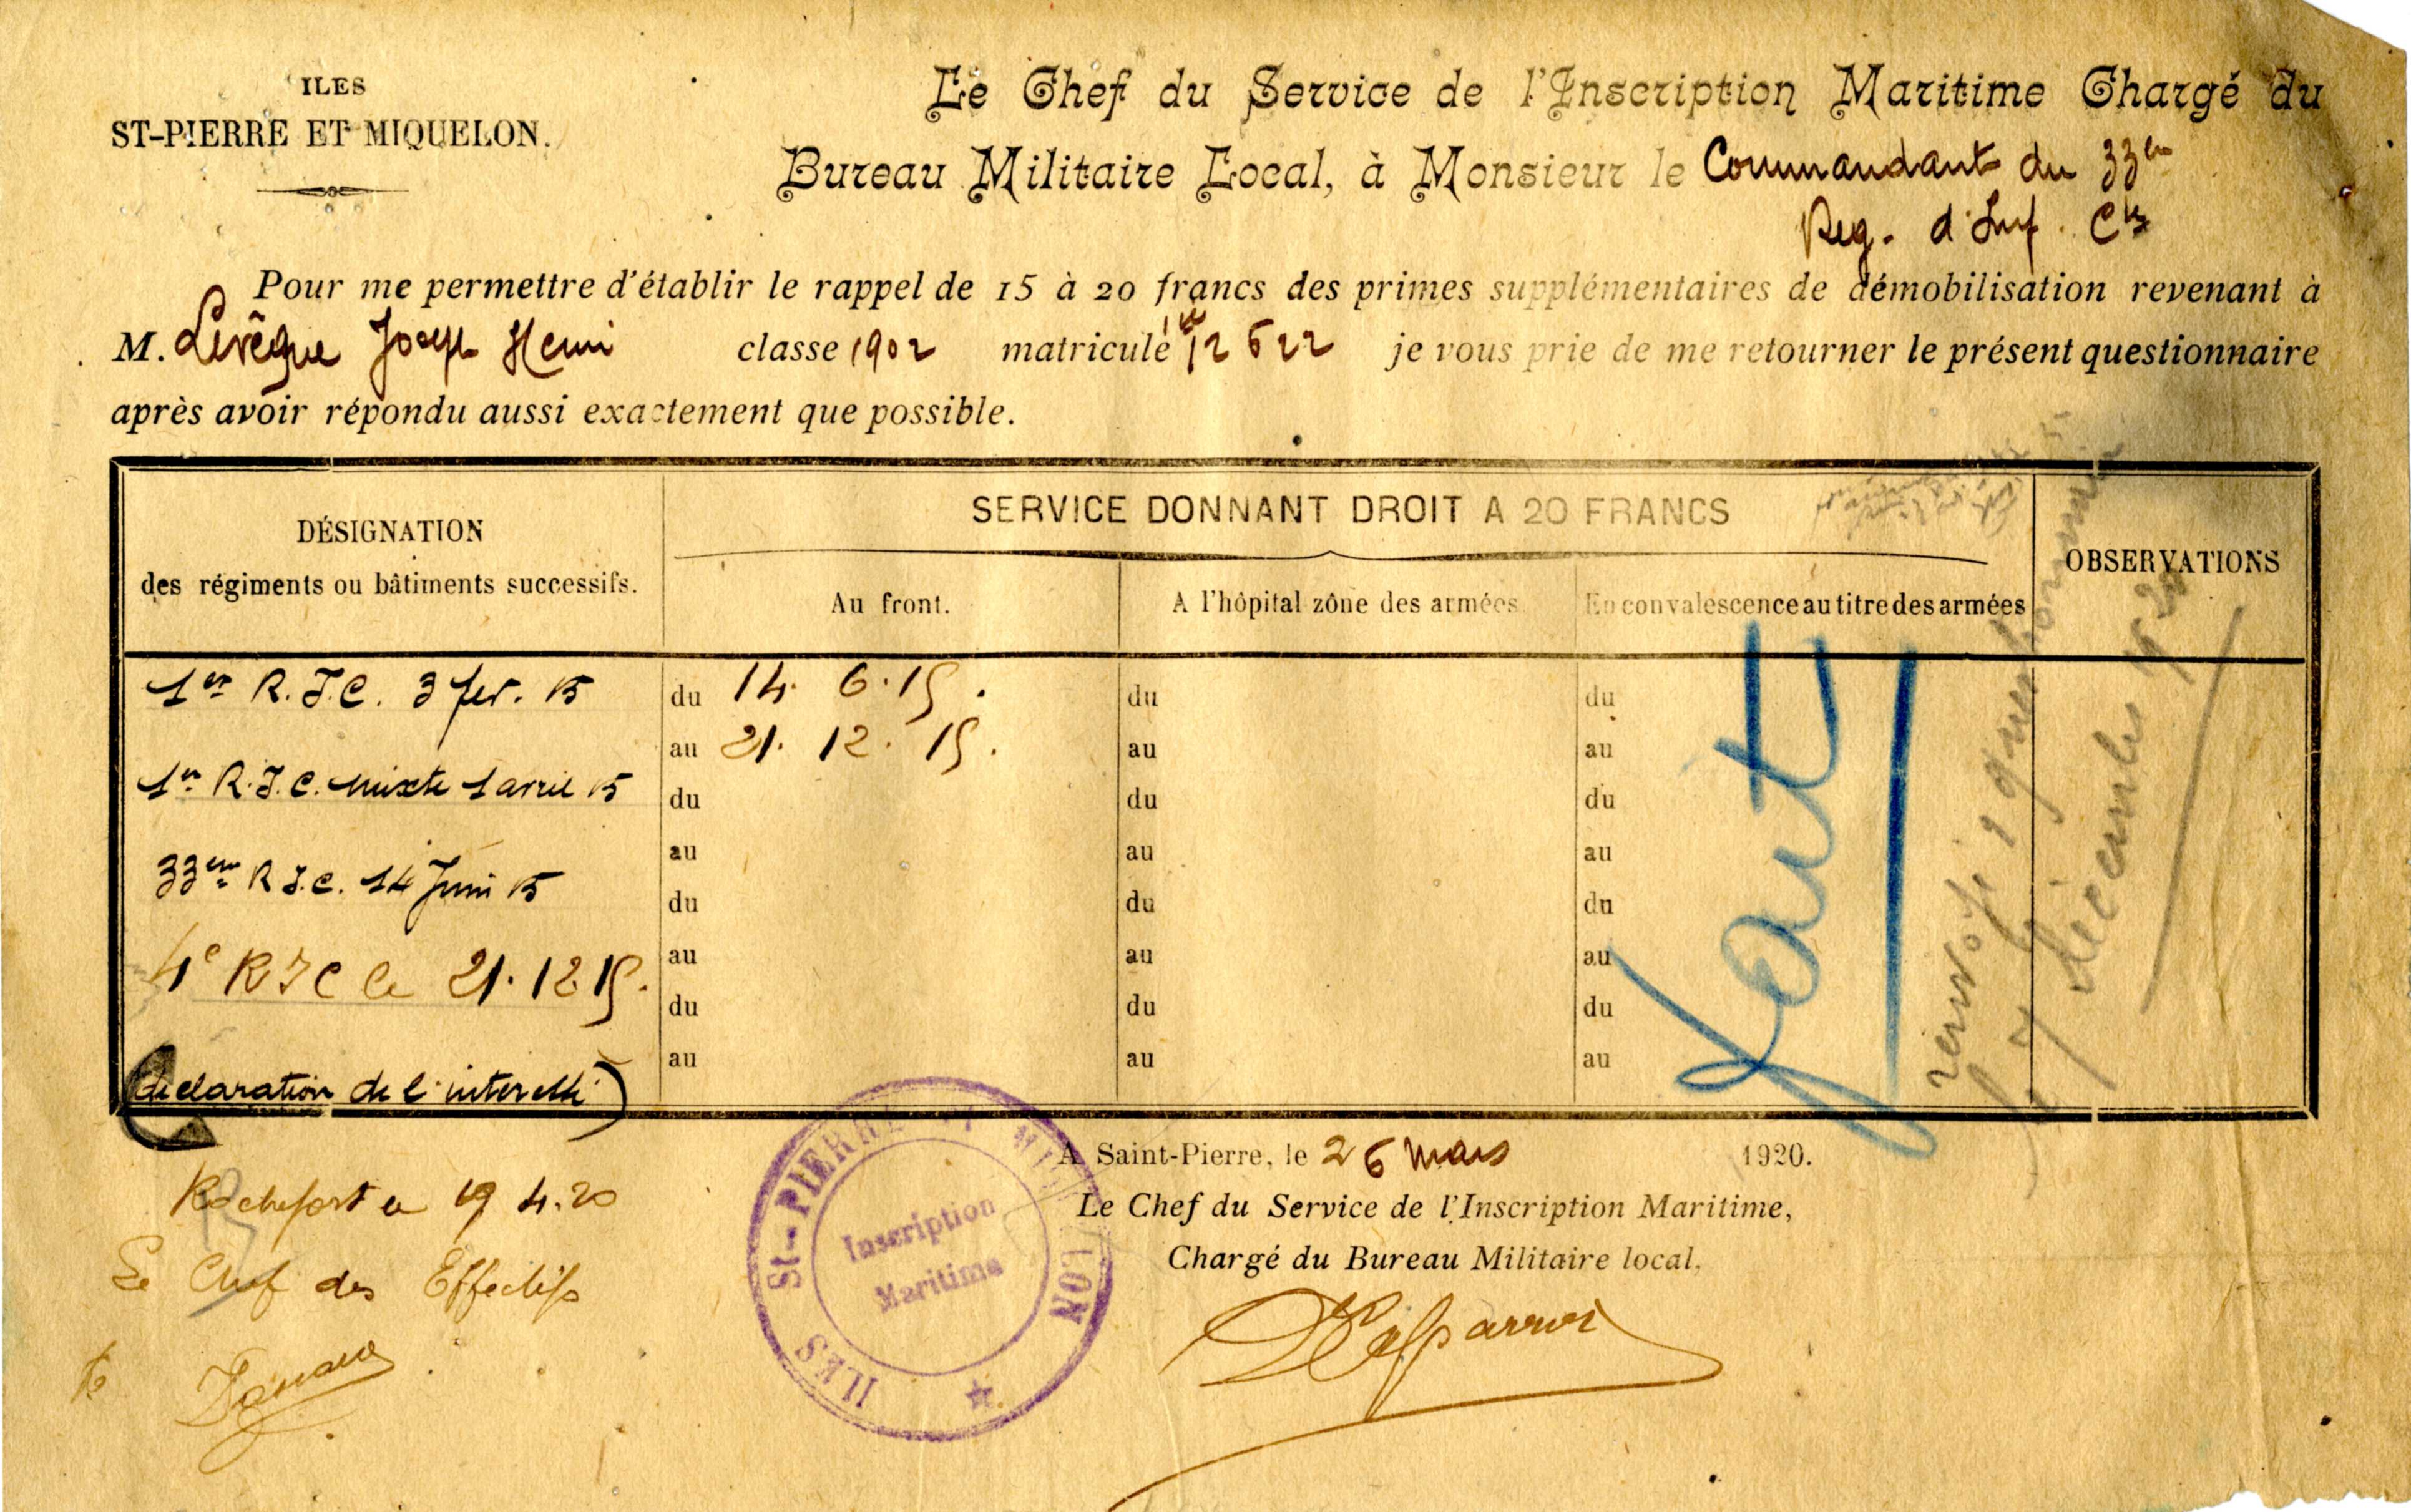 ILES
ST-PIERRE ET MIQUELON.
Le Chef du Service de l'Inscription Maritime Chargé du
Bureau Militaire Local, à Monsieur le Commandant du 33em
Reg. d'Inf. Cle
Pour me permettre d'établir le rappel de 15 à 20 francs des primes supplémentaires de démobilisation revenant à
M. Levêque Joseph Henri classe 1902 matricule 12622 je vous prie de me retourner le présent questionnaire
après avoir répondu aussi exactement que possible.
DÉSIGNATION
des régiments ou bâtiments successifs.
SERVICE DONNANT DROIT A 20 FRANCS
Au front.
A l'hôpital zône des armées
En convalescence au titre des armées
OBSERVATIONS
1er R.I.C. 3 fev. 15
du 14. 6. 15.
du
du
au 21. 12. 15.
au
au
1er R.I.C. mixte 1 avril 15
du
du
du
au
au
au
33em R.I.C. 14 Juin 15
du
du
du
4e RIC le 21.12.15.
au
au
au
du
du
du
au
au
au
(declaration de l'interessé)
fait
renvoyé questionnaire
le 7 décembre 1920
A Saint-Pierre, le 26 Mars 1920.
Le Chef du Service de l'Inscription Maritime,
Chargé du Bureau Militaire local,
Rochefort le 19 4.20
Le Chef des Effectifs
ILES St-PIERRE ET MIQUELON
Inscription
Maritime